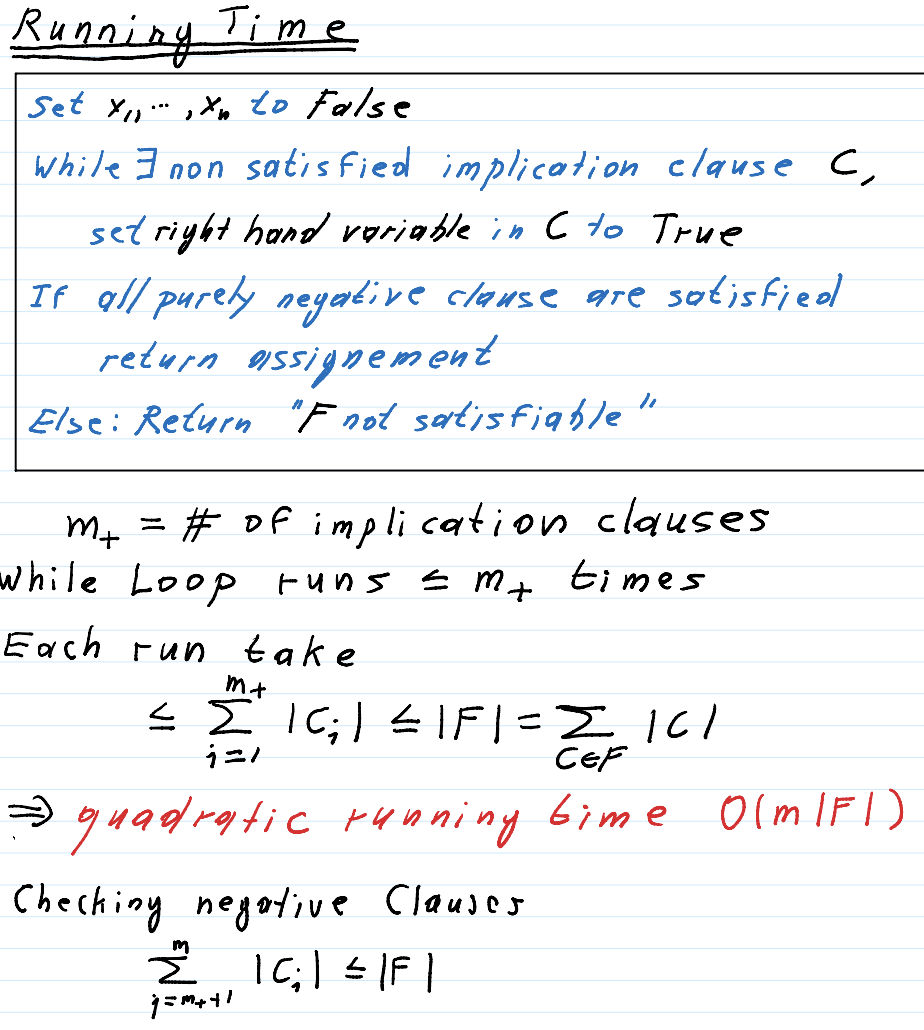 Running Time
Set x₁, ..., xₙ to False
While ∃ non satisfied implication clause C,
set right hand variable in C to True
If all purely negative clause are satisfied
return assignement
Else: Return "F not satisfiable"
m₊ = # of implication clauses
While Loop runs ≤ m₊ times
Each run take
≤ ∑_{j=1}^{m₊} |C_j| ≤ |F| = ∑_{C∈F} |C|
⇒ quadratic running time O(m|F|)
Checking negative Clauses
∑_{j=m₊+1}^{m} |C_j| ≤ |F|